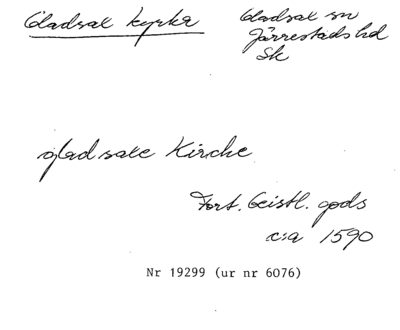 Gladsax kyrka
Gladsax sn
Järrestads hd
Sk
gladsaxe Kirche
Fort. Geistl. gods
c:a 1590
Nr 19299 (ur nr 6076)